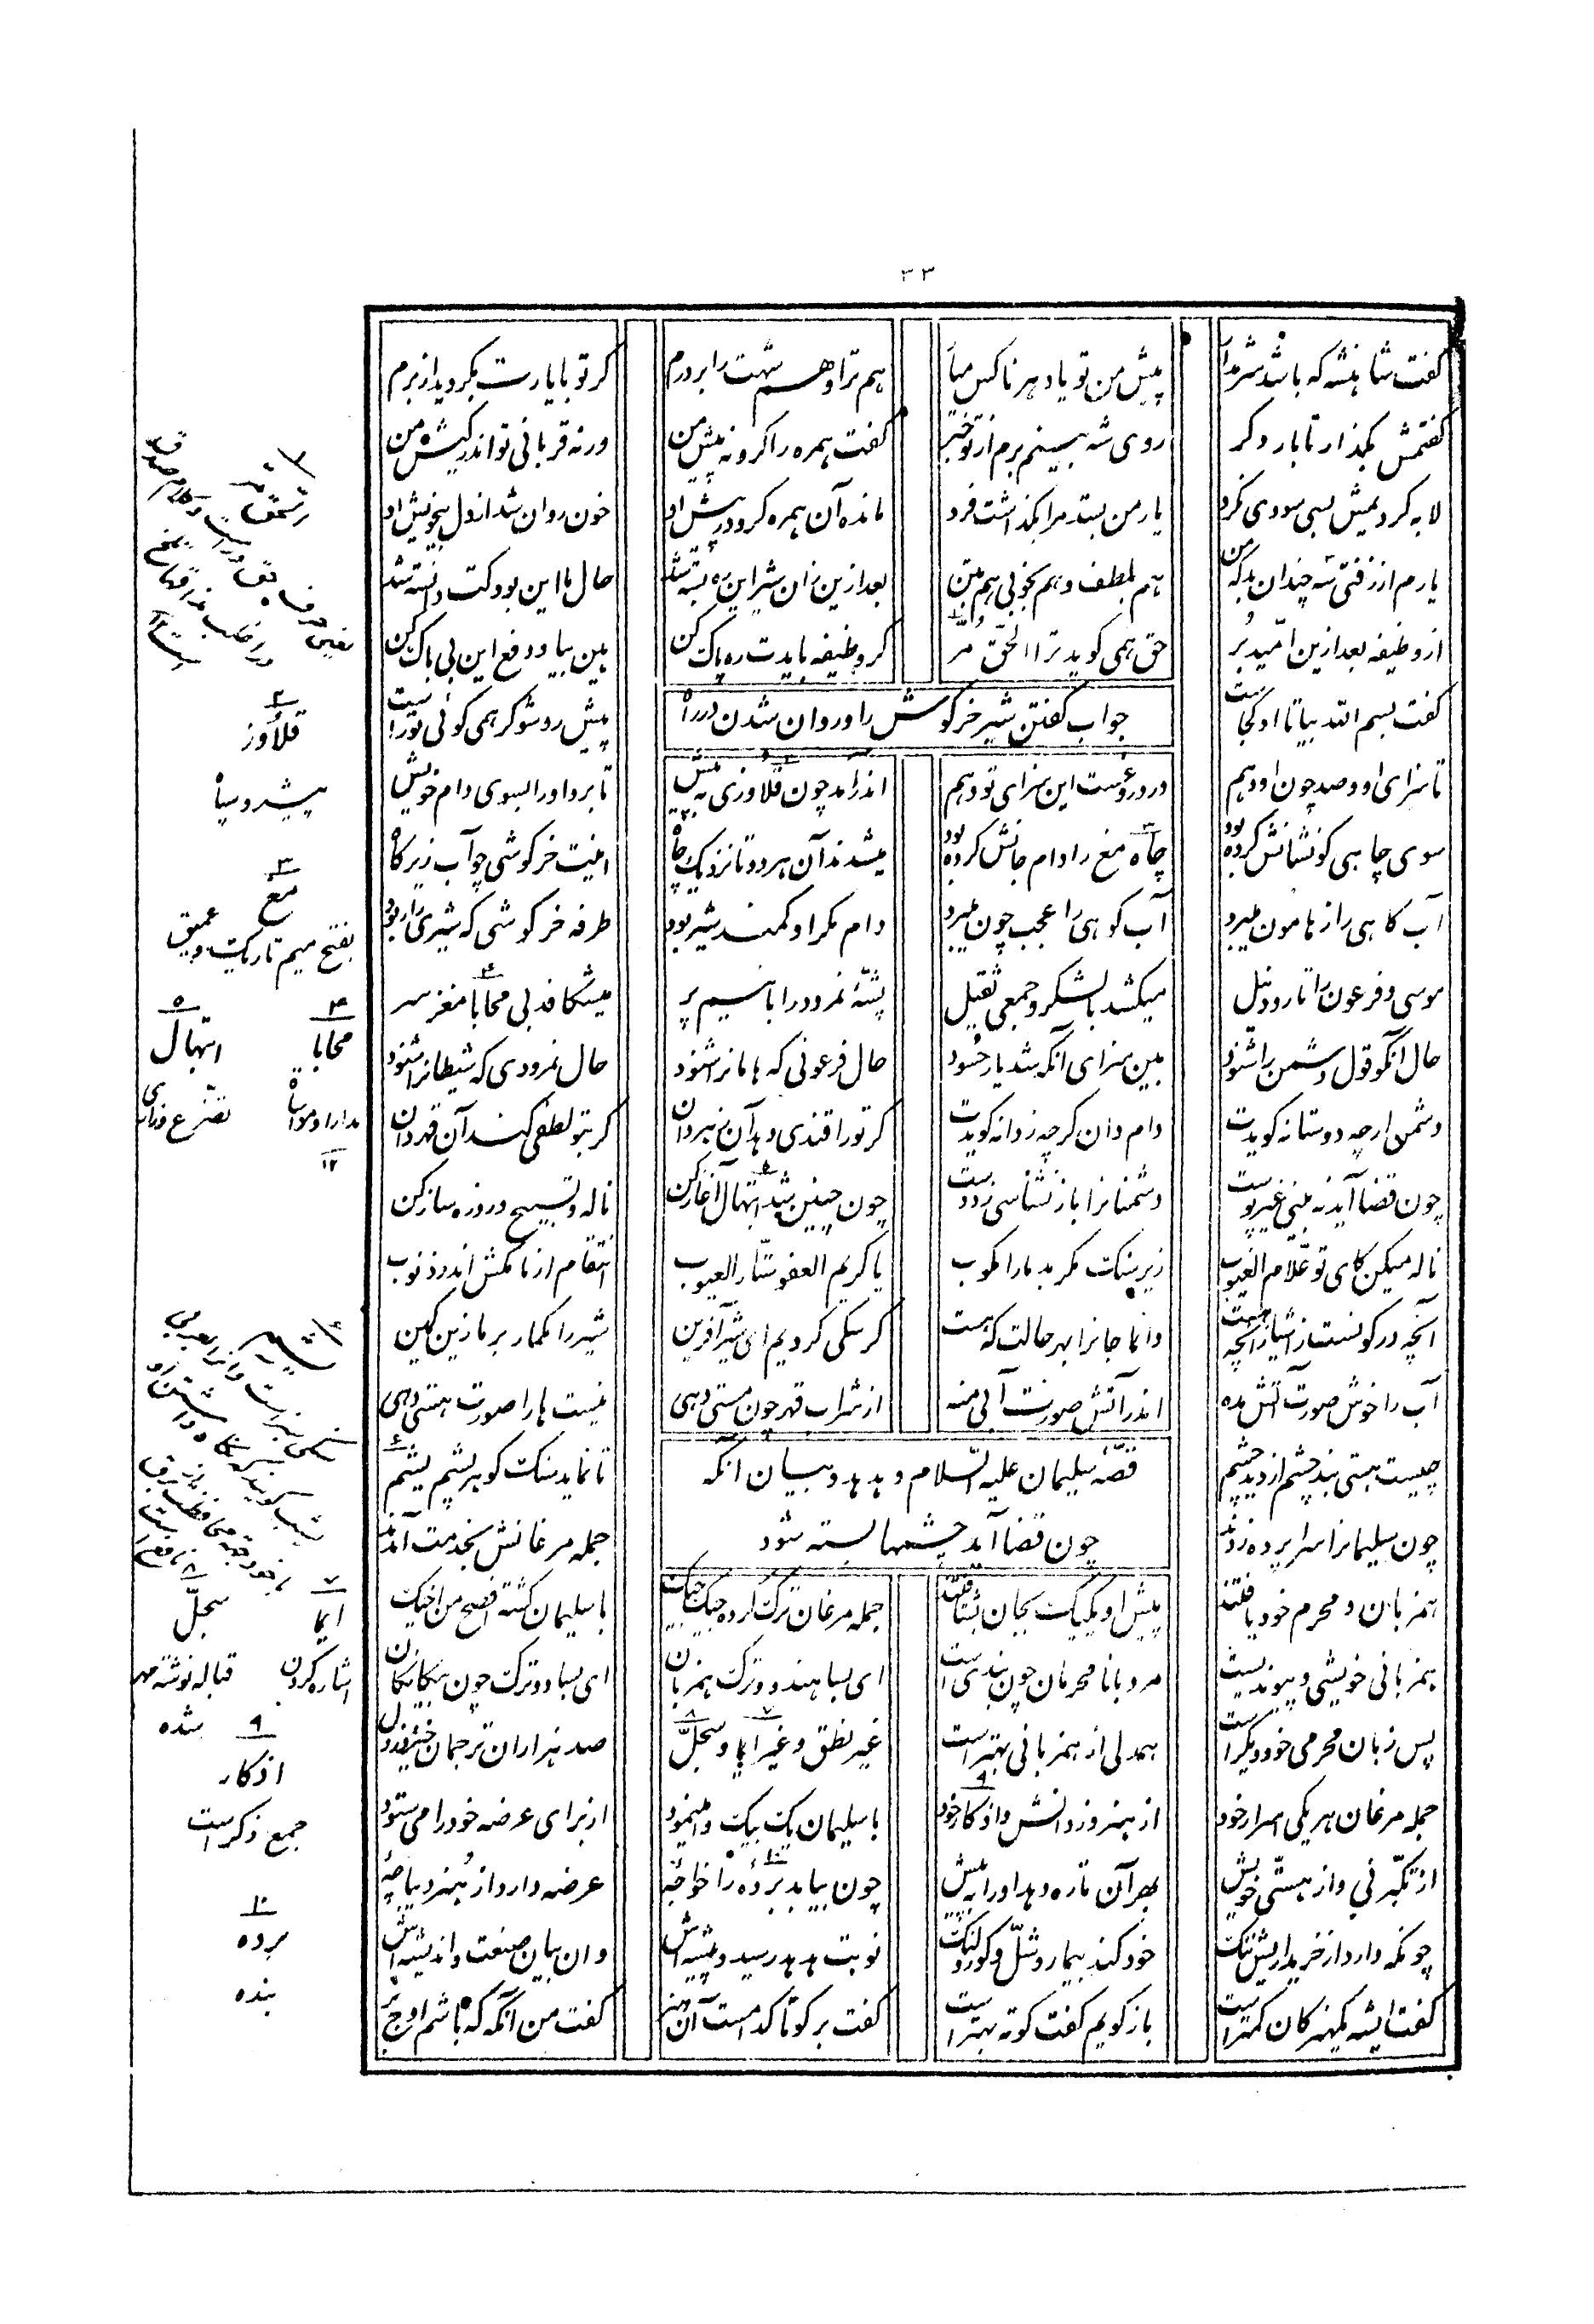 ٣٣
گفت شاهنشه که باشد شرم دار پیش من تو یاد هر ناکس میار
هم ترا و هم شهت را بر درم گر تو با یارت بگردید از برم
گفتمش بگذار تا بار دگر روی شه بینم برم از تو خبر
گفت همره را گرو نه پیش من ورنه قربانی تو اندر کیش من
لابه کردیمش بسی سودی نکرد یار من بستد مرا بگذاشت فرد
مانده آن همره گرو در پیش او خون روان شد از دل بیخویش او
یارم از زفتی سه چندان بد که من هم بلطف و هم بخوبی هم بتن
بعد ازین زان شیر این ره بسته شد حال ما این بود کت دانسته شد
از وظیفه بعد ازین امید بر حق همی گوید ترا الحق مر
گر وظیفه بایدت ره پاک کن هین بیا و دفع این بی باک کن
جواب گفتن شیر خرگوش را و روان شدن در راه
گفت بسم الله بیا تا او کجاست پیش رو شو گر همی گوئی تو راست
تا سزای او و صد چون او دهم ور دروغست این سزای تو دهم
اندر آمد چون قلاوزی به پیش تا برد او را بسوی دام خویش
سوی چاهی کو نشانش کرده بود چاه مغ را دام جانش کرده بود
میشدند آن هر دو تا نزدیک چاه اینت خرگوشی چو آب زیر کاه
آب کاهی را ز هامون میبرد آب کوهی را عجب چون میبرد
دام مکر او کمند شیر بود طرفه خرگوشی که شیری را ربود
موسی و فرعون را تا رود نیل میکشد با لشکر و جمعی ثقیل
پشهٔ نمرود را با نیم پر میشکافد بی محابا مغز سر
حال آنکو قول دشمن را شنود بین سزای آنکه شد یار حسود
حال فرعونی که هامانرا شنود حال نمرودی که شیطانرا شنود
دشمن ارچه دوستانه گویدت دام دان گرچه ز دانه گویدت
گر تو را قندی دهد آن زهر دان گر بتو لطفی کند آن قهر دان
چون قضا آید نه بینی غیر پوست دشمنانرا باز نشناسی ز دوست
چون چنین شد ابتهال آغاز کن ناله و تسبیح و روزه ساز کن
ناله میکن کای تو علام الغیوب زیر سنگ مکر بد ما را مکوب
یا کریم العفو ستار العیوب انتقام از ما مکش اندر ذنوب
آنچه در کونست ز اشیا آنچه هست وا نما جانرا بهر حالت که هست
گر سگی کردیم ای شیر آفرین شیر را مگمار بر ما زین کمین
آب را خوش صورت آتش مده اندر آتش صورت آبی منه
از شراب قهر چون مستی دهی نیست ها را صورت هستی دهی
چیست هستی بند چشم از دید چشم تا نماید سنگ گوهر پشم یشم
قصهٔ سلیمان علیه السلام و هدهد و بیان آنکه
چون قضا آید چشمها بسته شود
چون سلیمانرا سراپرده زدند جمله مرغانش بخدمت آمدند
همزبان و محرم خود یافتند پیش او یکیک بجان بشتافتند
جمله مرغان ترک کرده جیک جیک با سلیمان گشته افصح من اخیک
همزبانی خویشی و پیوندیست مرد با نامحرمان چون بندیست
ای بسا هندو و ترک همزبان ای بسا دو ترک چون بیگانگان
پس زبان محرمی خود دیگرست همدلی از همزبانی بهترست
غیر نطق و غیر ایما و سجل صد هزاران ترجمان خیزد ز دل
جمله مرغان هر یکی اسرار خود از هنر وز دانش و از کار خود
با سلیمان یک بیک وا مینمود از برای عرضه خود را می ستود
از تکبر نی و از هستی خویش بهر آن تا ره دهد او را به پیش
چون بیاید برده را خواجهٔ عرضه دارد از هنر دیباچهٔ
چونکه دارد از خریداریش ننگ خود کند بیمار و شل و کور و لنگ
نوبت هدهد رسید و پیشه اش وان بیان صنعت و اندیشه اش
گفت ای شه یک هنر کان کمترست باز گویم گفت کوته بهترست
گفت بر گو تا کدامست آن هنر گفت من آنگه که باشم اوج بر
٢
قلاوز
پیشرو سپاه
٣
مغ
بفتح میم تاریک و عمیق
٤
محابا
مدارا و مواساة
٥
ابتهال
تضرع و زاری
١٢
٧
ایما
اشاره کردن
٨
سجل
قباله نوشته مهر
شده
٩
اذکار
جمع ذکر است
١٠
برده
بنده